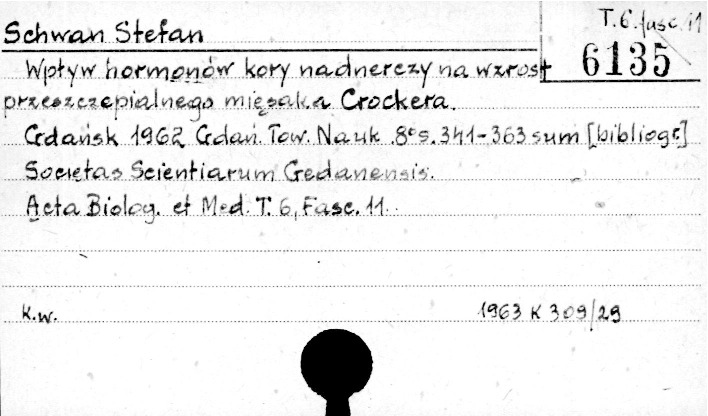 T. 6. fasc. 11
Schwan Stefan
6135
Wpływ hormonów kory nadnerczy na wzrost
przeszczepialnego mięsaka Crockera.
Gdańsk 1962 Gdań. Tow. Nauk. 8° s. 341-363 sum [bibliogr.]
Societas Scientiarum Gedanensis.
Acta Biolog. et Med. T. 6, Fasc. 11.
K.w.
1963 K 309/29